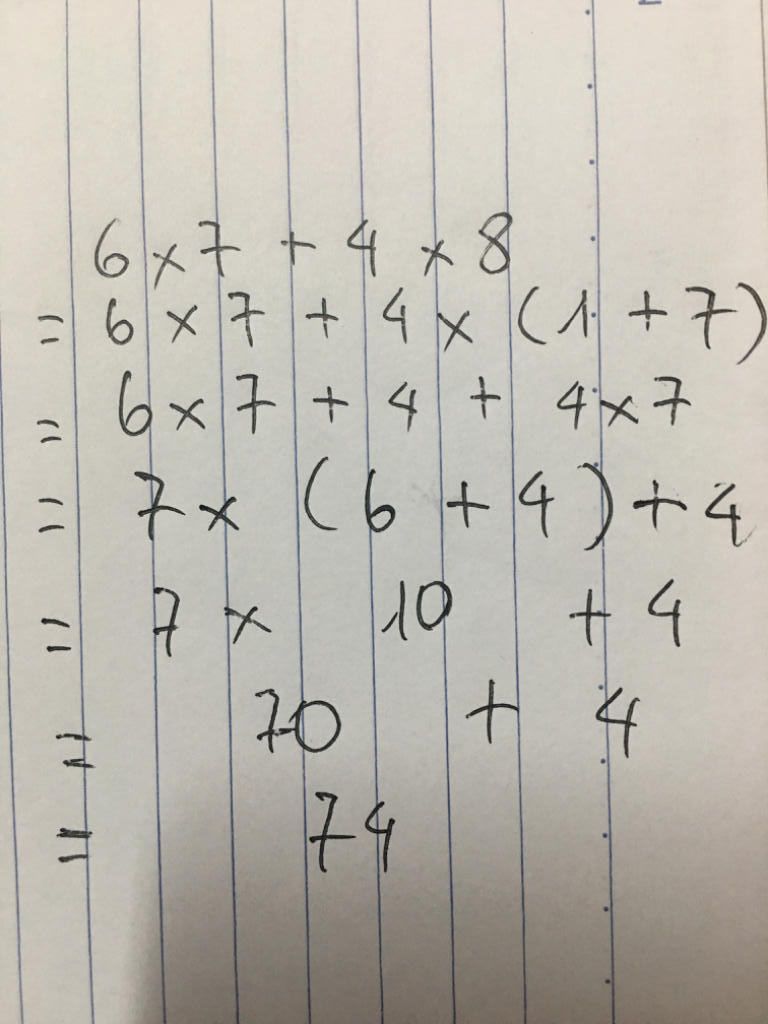 6 × 7 + 4 × 8
= 6 × 7 + 4 × (1 + 7)
= 6 × 7 + 4 + 4 × 7
= 7 × (6 + 4) + 4
= 7 × 10 + 4
= 70 + 4
= 74